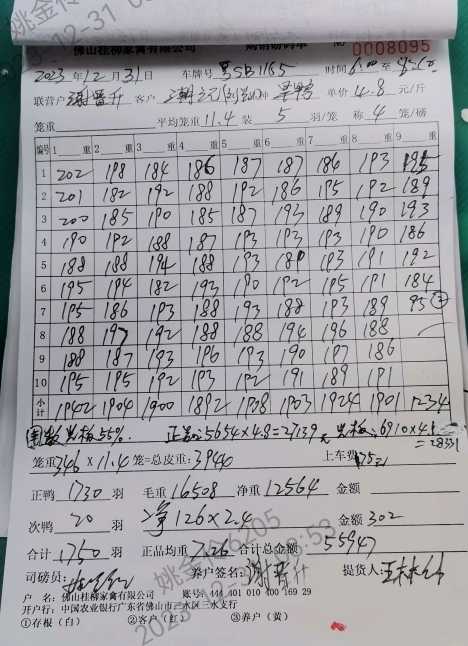 佛山桂柳家禽有限公司 购销磅码单 № 0008095
2023年12月31日 车牌号 粤SB1165 时间6:00至
联营户 谢晋升 客户 单价 4.8 元/斤
笼重 平均笼重 11.4 装 5 羽/笼 称 4 笼/磅
编号 1 重 2 重 3 重 4 重 5 重 6 重 7 重 8 重 9 重
1 202 198 184 186 187 187 186 193 195
2 201 182 192 188 192 186 195 192 189
3 200 185 190 185 187 193 189 190 193
4 190 192 188 187 193 193 193 190 186
5 188 188 194 188 193 180 193 191 192
6 195 194 182 193 190 192 195 191 184
7 195 186 193 188 193 188 193 189 95
8 188 197 192 188 188 194 196 188
9 188 187 193 196 193 190 197 186
10 195 195 192 193 192 191 189 191
小计 1942 1904 1900 1892 1908 1903 1924 1901 1234
55%. 正 5654×4.8=27139元 6910×4.1
=28331
笼重 346 × 11.40 笼=总皮重: 3944 上车费
正鸭 1730 羽 毛重 16508 净重 12564 金额
次鸭 20 羽 净 126×2.4 金额 302
合计 1750 羽 正品均重 7.26 合计总金额 55947
司磅员: 养户签名: 谢晋升 提货人:
户 名: 佛山桂柳家禽有限公司 账号: 444 401 010 400 169 29
开户行: 中国农业银行广东省佛山市三水区三水支行
①存根(白) ②客户(红) ③养户(黄)